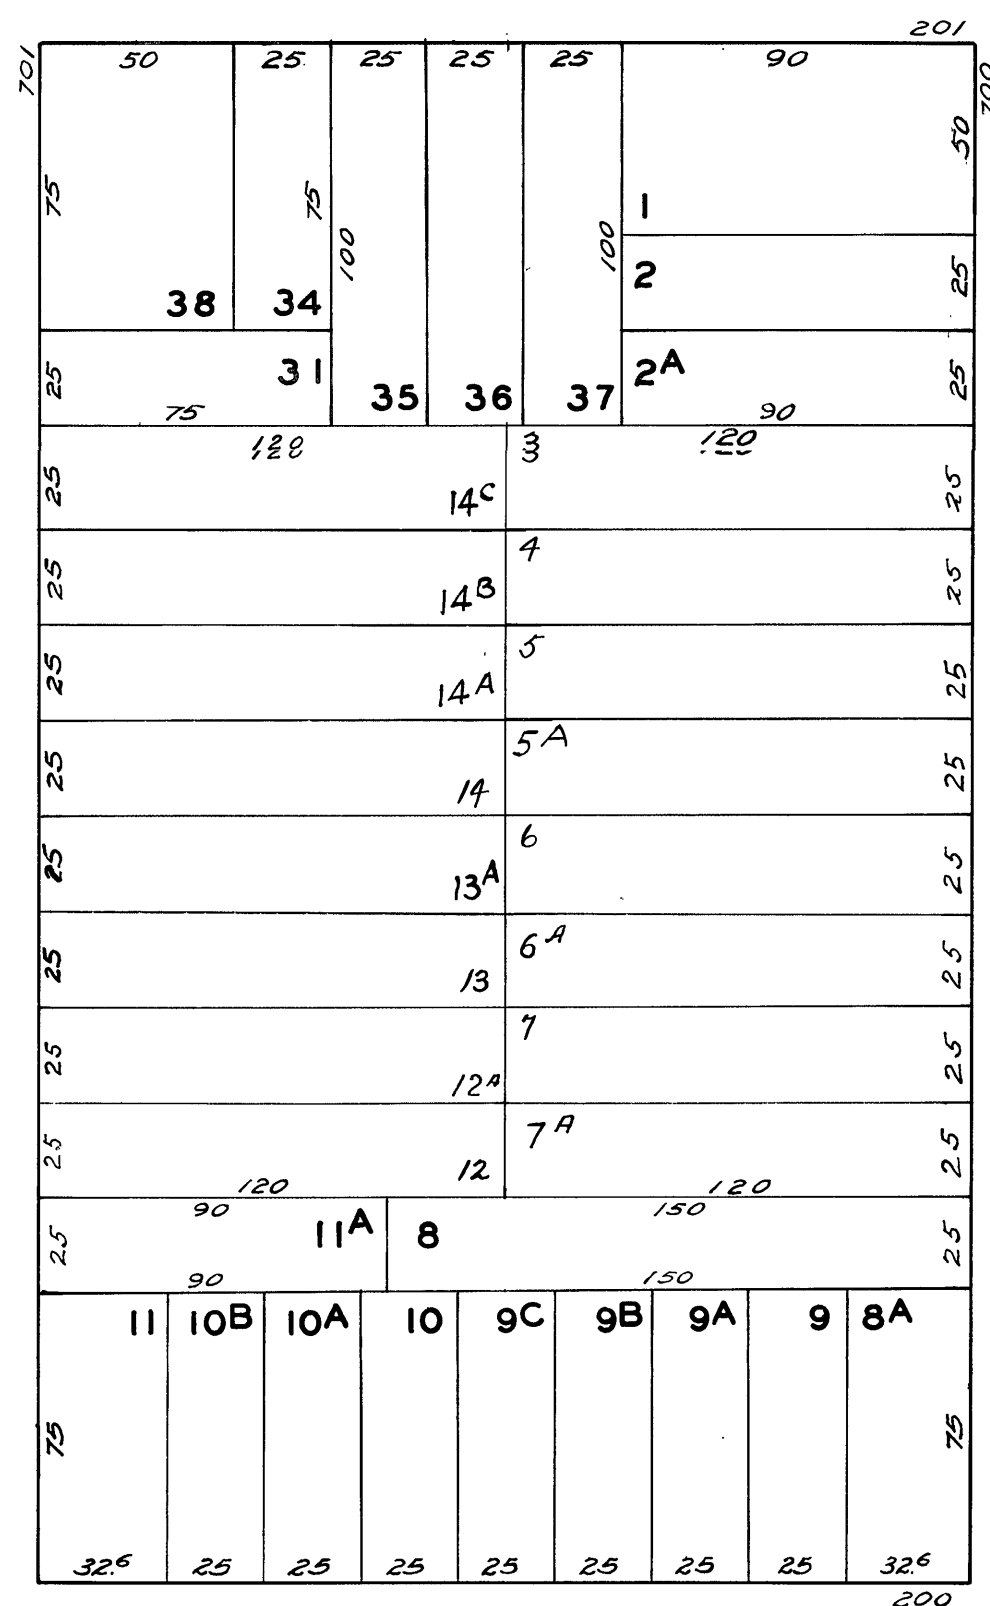 201
701 50 25 25 25 25 90 700
75 75 100 100 50
1
38 34 2 25
25 31 35 36 37 2A 25
75 90
120 3 120
25 14C 25
4
25 14B 25
5
25 14A 25
5A
25 14 25
6
25 13A 25
6A
25 13 25
7
25 12A 25
7A
25 12 25
120 120
90 150
25 11A 8 25
90 150
11 10B 10A 10 9C 9B 9A 9 8A
75 75
32.6 25 25 25 25 25 25 25 32.6
200